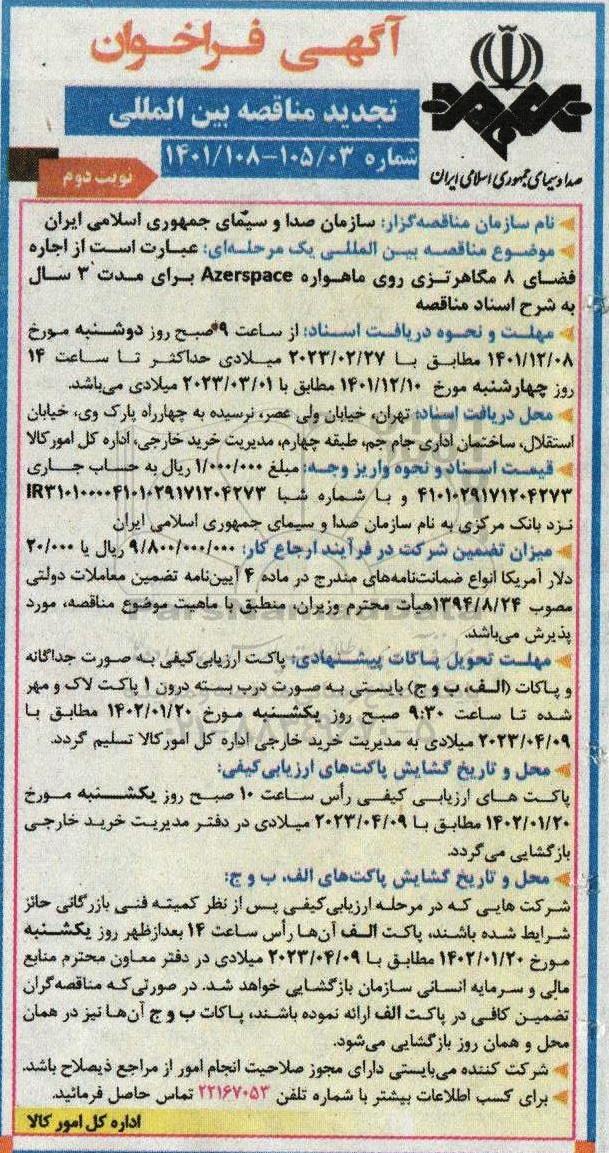 آگهی فراخوان
تجدید مناقصه بین المللی
شماره ۱۴۰۱/۱۰۸-۱۰۵/۰۳
نوبت دوم
صدا و سیمای جمهوری اسلامی ایران
نام سازمان مناقصه‌گزار: سازمان صدا و سیمای جمهوری اسلامی ایران
موضوع مناقصه بین المللی یک مرحله‌ای: عبارت است از اجاره
فضای ۸ مگاهرتزی روی ماهواره Azerspace برای مدت ۳ سال
به شرح اسناد مناقصه
مهلت و نحوه دریافت اسناد: از ساعت ۹ صبح روز دوشنبه مورخ
۱۴۰۱/۱۲/۰۸ مطابق با ۲۰۲۳/۰۲/۲۷ میلادی حداکثر تا ساعت ۱۴
روز چهارشنبه مورخ ۱۴۰۱/۱۲/۱۰ مطابق با ۲۰۲۳/۰۳/۰۱ میلادی می‌باشد.
محل دریافت اسناد: تهران، خیابان ولی عصر، نرسیده به چهارراه پارک وی، خیابان
استقلال، ساختمان اداری جام جم، طبقه چهارم، مدیریت خرید خارجی، اداره کل امور کالا
قیمت اسناد و نحوه واریز وجه: مبلغ ۱/۰۰۰/۰۰۰ ریال به حساب جاری
۴۱۰۱۰۲۹۱۷۱۲۰۴۲۷۳ و با شماره شبا IR۳۱۰۱۰۰۰۰۴۱۰۱۰۲۹۱۷۱۲۰۴۲۷۳
نزد بانک مرکزی به نام سازمان صدا و سیمای جمهوری اسلامی ایران
میزان تضمین شرکت در فرآیند ارجاع کار: ۹/۸۰۰/۰۰۰/۰۰۰ ریال یا ۲۰/۰۰۰
دلار آمریکا انواع ضمانت‌نامه‌های مندرج در ماده ۴ آیین‌نامه تضمین معاملات دولتی
مصوب ۱۳۹۴/۸/۲۴هیأت محترم وزیران، منطبق با ماهیت موضوع مناقصه، مورد
پذیرش می‌باشد.
مهلت تحویل پاکات پیشنهادی: پاکت ارزیابی‌کیفی به صورت جداگانه
و پاکات (الف، ب و ج) بایستی به صورت درب بسته درون ۱ پاکت لاک و مهر
شده تا ساعت ۹:۳۰ صبح روز یکشنبه مورخ ۱۴۰۲/۰۱/۲۰ مطابق با
۲۰۲۳/۰۴/۰۹ میلادی به مدیریت خرید خارجی اداره کل امور کالا تسلیم گردد.
محل و تاریخ گشایش پاکت‌های ارزیابی‌کیفی:
پاکت های ارزیابی کیفی رأس ساعت ۱۰ صبح روز یکشنبه مورخ
۱۴۰۲/۰۱/۲۰ مطابق با ۲۰۲۳/۰۴/۰۹ میلادی در دفتر مدیریت خرید خارجی
بازگشایی می‌گردد.
محل و تاریخ گشایش پاکت‌های الف، ب و ج:
شرکت هایی که در مرحله ارزیابی‌کیفی پس از نظر کمیته فنی بازرگانی حائز
شرایط شده باشند، پاکت الف آن‌ها رأس ساعت ۱۴ بعدازظهر روز یکشنبه
مورخ ۱۴۰۲/۰۱/۲۰ مطابق با ۲۰۲۳/۰۴/۰۹ میلادی در دفتر معاون محترم منابع
مالی و سرمایه انسانی سازمان بازگشایی خواهد شد. در صورتی‌که مناقصه‌گران
تضمین کافی در پاکت الف ارائه نموده باشند، پاکات ب و ج آن‌ها نیز در همان
محل و همان روز بازگشایی می‌شود.
شرکت کننده می‌بایستی دارای مجوز صلاحیت انجام امور از مراجع ذیصلاح باشد.
برای کسب اطلاعات بیشتر با شماره تلفن ۲۲۱۶۷۰۵۳ تماس حاصل فرمائید.
اداره کل امور کالا